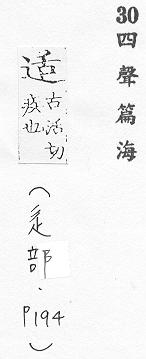 30四聲篇海
古活切
疾也
（辵部．P194）